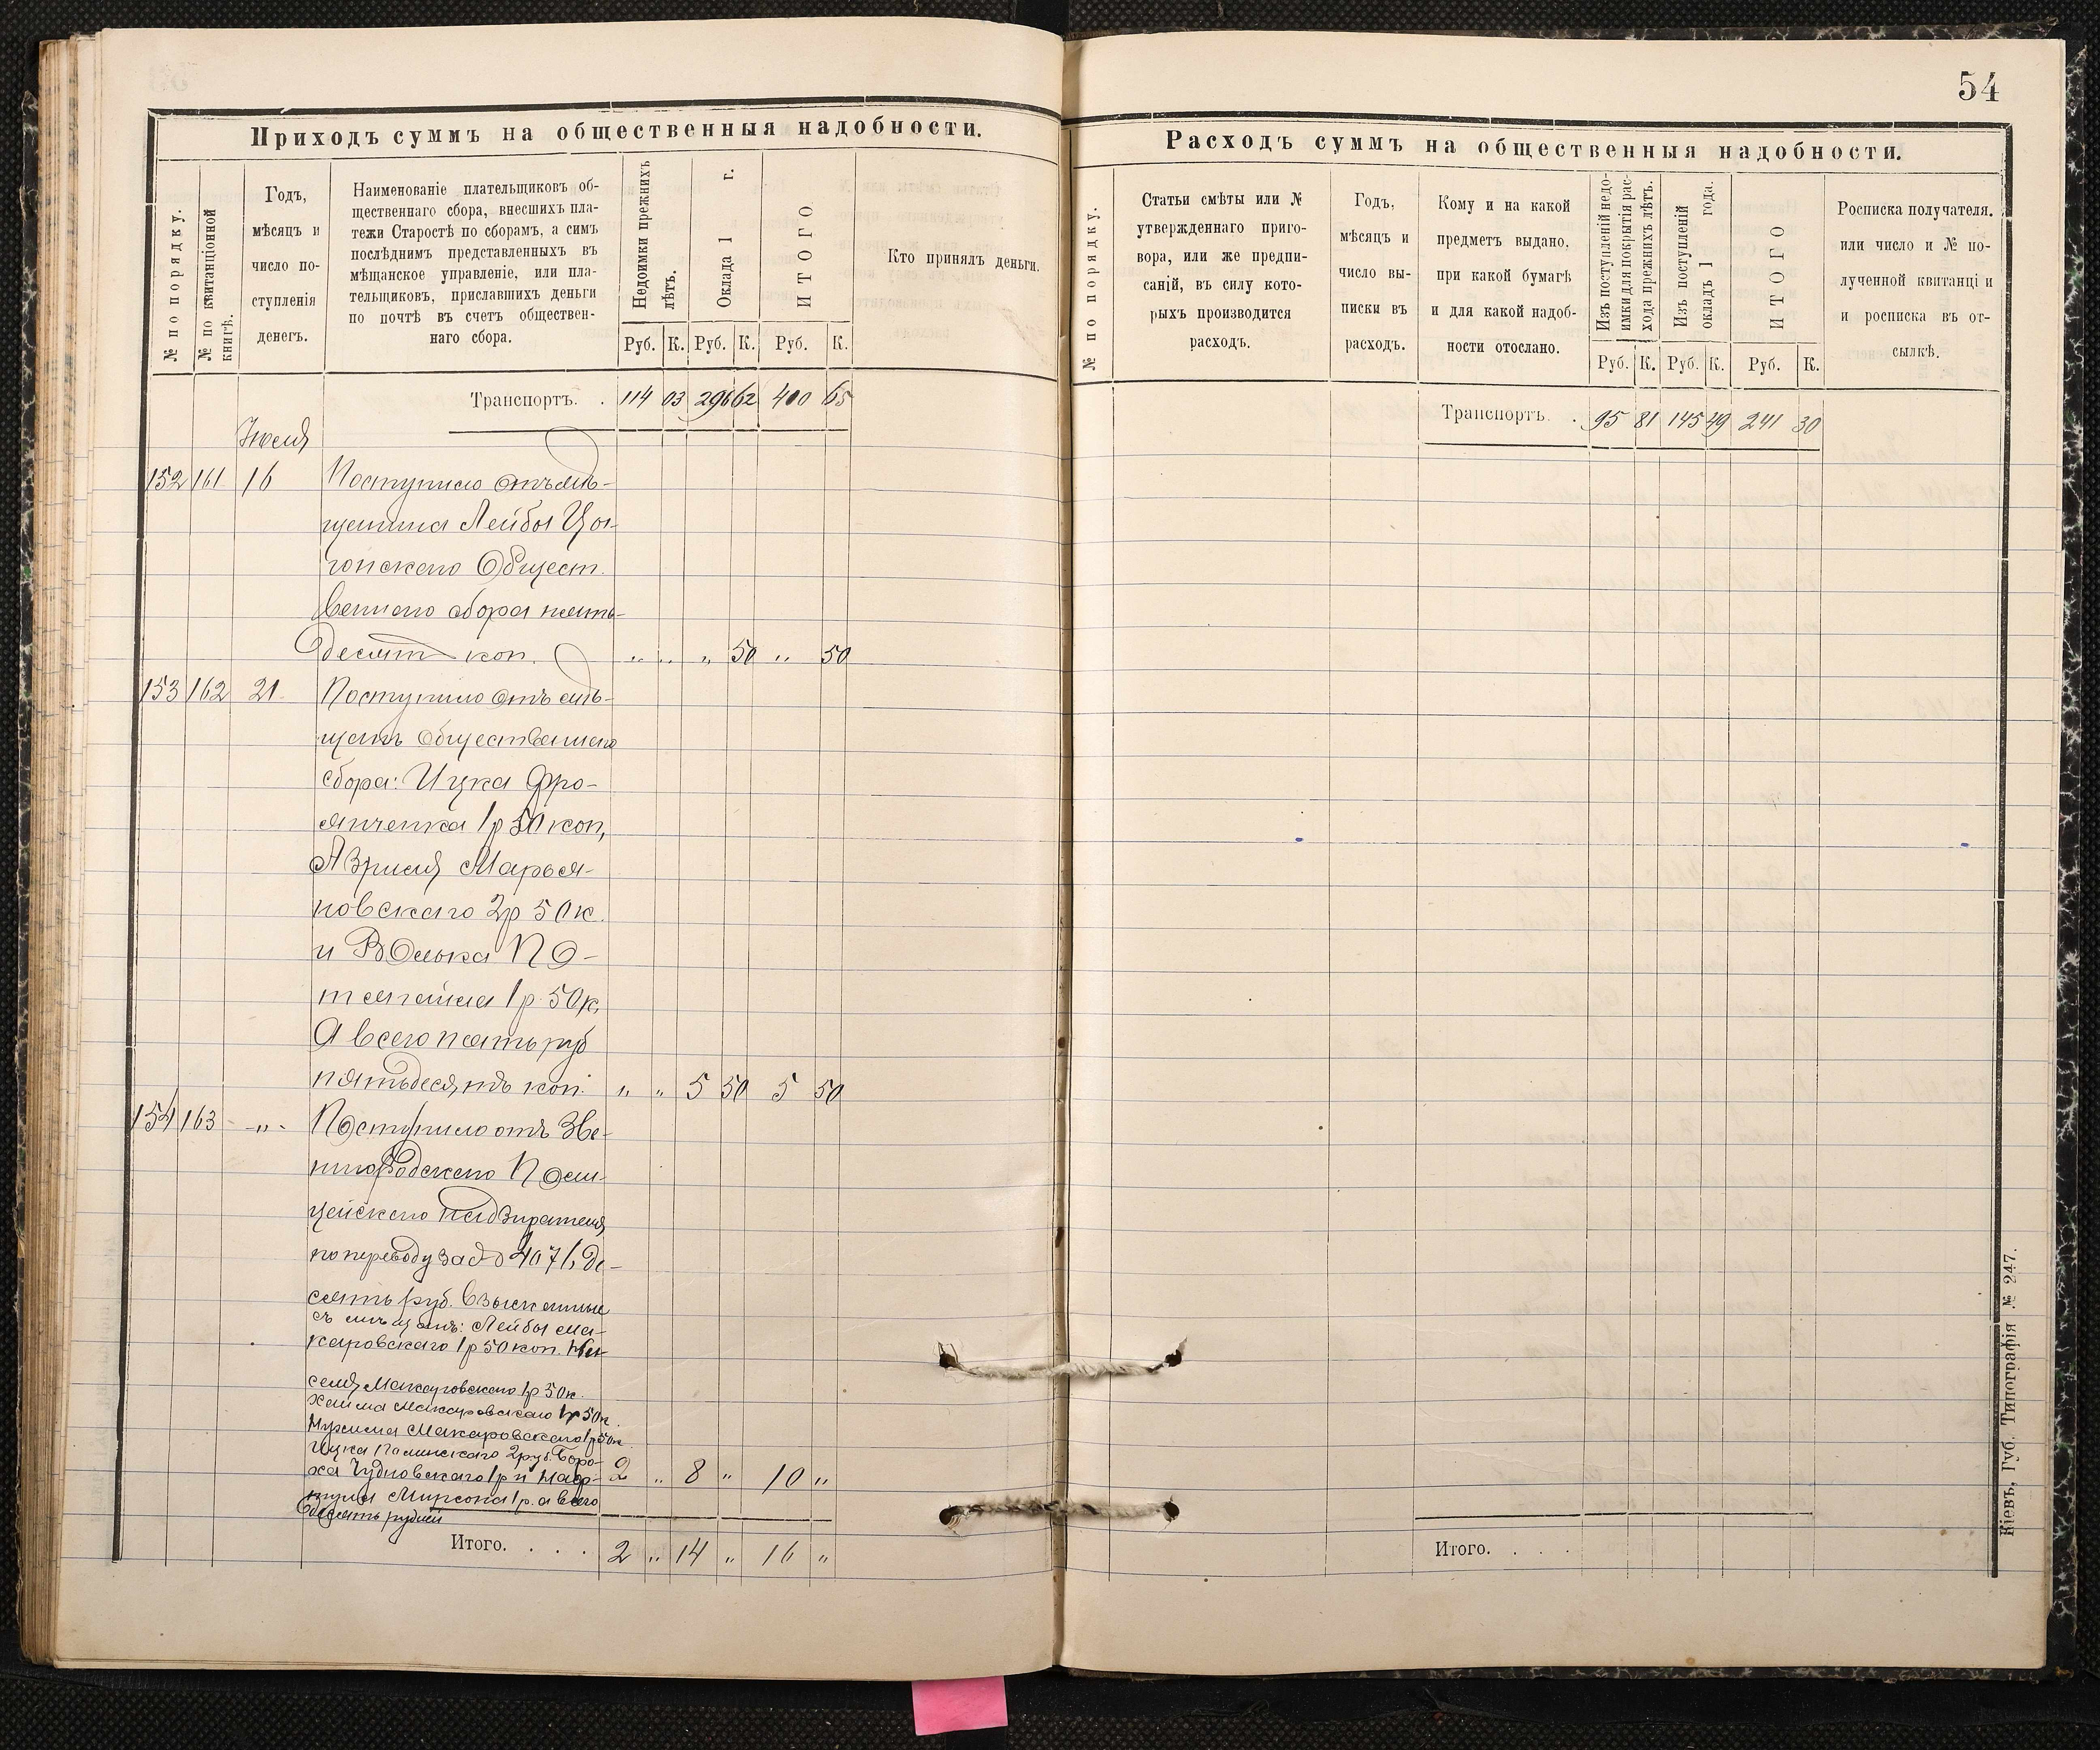 54
Приходъ суммъ на общественныя надобности.
№ по порядку.
№ по квитанціонной книгѣ.
Годъ,
мѣсяцъ и
число по-
ступленія
денегъ.
Наименованіе плательщиковъ об-
щественнаго сбора, внесшихъ пла-
тежи Старостѣ по сборамъ, а симъ
послѣднимъ представленныхъ въ
мѣщанское управленіе, или пла-
тельщиковъ, приславшихъ деньги
по почтѣ въ счетъ обществен-
наго сбора.
Недоимки прежнихъ
лѣтъ.
Оклада 1 г.
ИТОГО
Кто принялъ деньги.
Руб. К. Руб. К. Руб. К.
Транспортъ. . 114 03 296 62 400 65
Іюля
152 161 16 Поступило отъ мѣ-
щанина Лейбы Цы-
гонскаго Общест
веннаго сбора пять-
десятъ коп. " " " 50 " 50
153 162 21 Поступило отъ мѣ-
щанъ Общественнаго
сбора: Ицка Фро-
янченка 1 р 50 коп,
Азриля Марья-
новскаго 2р 50к.
и Волька По-
1 р. 50к,
А всего пять руб
пятьдесятъ коп. " " 5 50 5 50
154 163 - " - Поступило отъ Зве-
нигородскаго Поли-
цейскаго Надзирателя
по переводу за № 4071, де-
сять руб. Взысканные
съ мѣщанъ: Лейбы Ма-
каровскаго 1 р 50 коп.
Макаровскаго 1р 50к.
Хаима Макаровскаго 1р 50к.
Макаровскаго 1р50к
Ицка 2руб. Боро-
ха Чудновскаго 1р и 2 " 8 " 10 "
Мирсона 1р. а всего
десять рублей
Итого. . . . 2 " 14 " 16 "
Расходъ суммъ на общественныя надобности.
№ по порядку.
Статьи смѣты или №
утвержденнаго приго-
вора, или же предпи-
саній, въ силу кото-
рыхъ производится
расходъ.
Годъ,
мѣсяцъ и
число вы-
писки въ
расходъ.
Кому и на какой
предметъ выдано,
при какой бумагѣ
и для какой надоб-
ности отослано.
Изъ поступленій недо-
имки для покрытія рас-
хода прежнихъ лѣтъ.
Изъ поступленій
окладъ 1 года.
ИТОГО
Росписка получателя.
или число и № по-
лученной квитанціи
и росписка въ от-
сылкѣ.
Руб. К. Руб. К. Руб. К.
Транспортъ. . 95 81 145 49 241 30
Итого. . . .
Кіевъ, Губ. Типографія № 247.